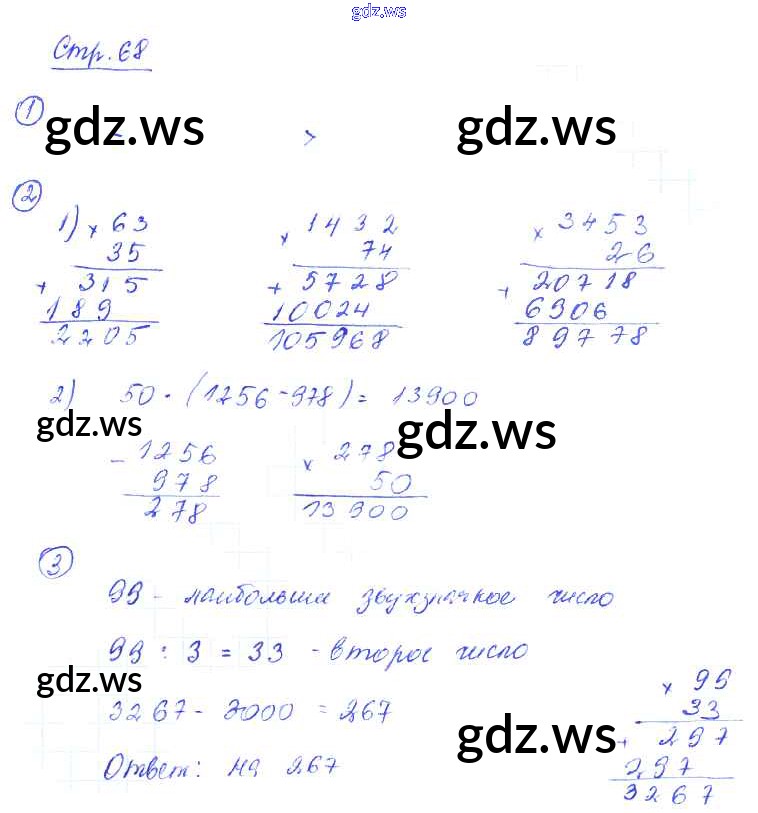 gdz.ws
Стр. 68
1
gdz.ws > gdz.ws
2
1) × 63 × 1432 × 3453
35 74 26
+ 315 + 5728 + 20718
189 10024 6906
2205 105968 89778
2) 50 · (1256 - 978) = 13900
gdz.ws gdz.ws
- 1256 × 278
978 50
278 13900
3
99 - наибольшее двухзначное число
99 : 3 = 33 - второе число
gdz.ws × 99
3267 - 3000 = 267 33
gdz.ws + 297
Ответ: на 267 297
3267